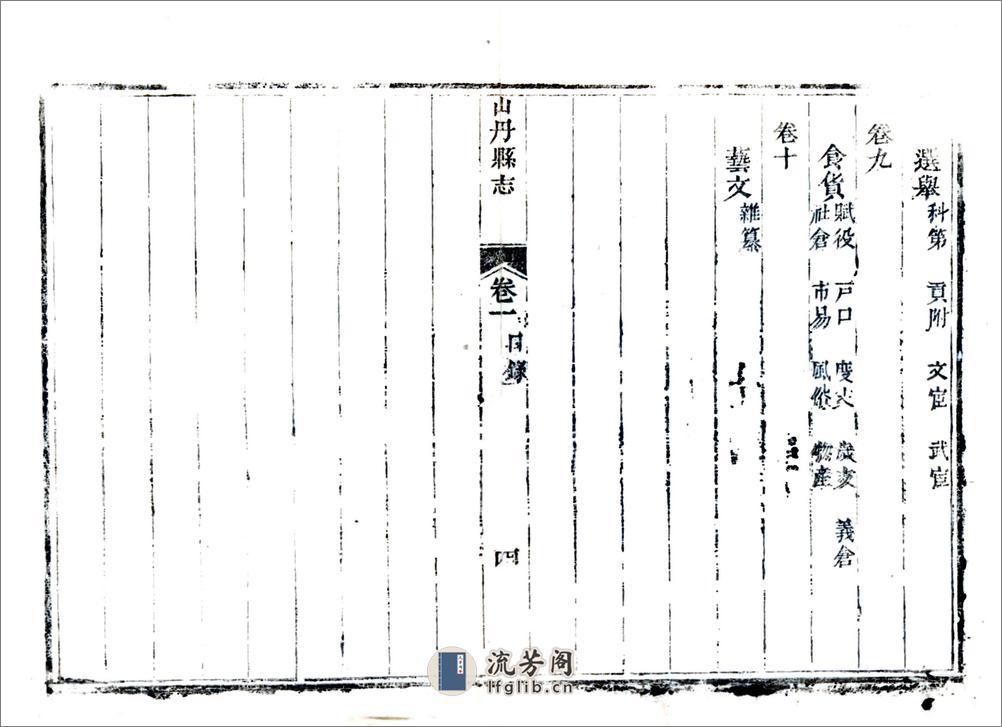 選舉 科第 貢附 文宦 武宦
卷九
食貨 賦役 戶口 義倉
社倉 市易 風俗 物產
卷十
藝文 雜纂
山丹縣志 卷一 目錄 四
流芳阁
lfglib.cn